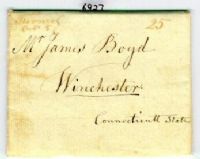 6927
25
Mr James Boyd
Winchester
Connecticutt State